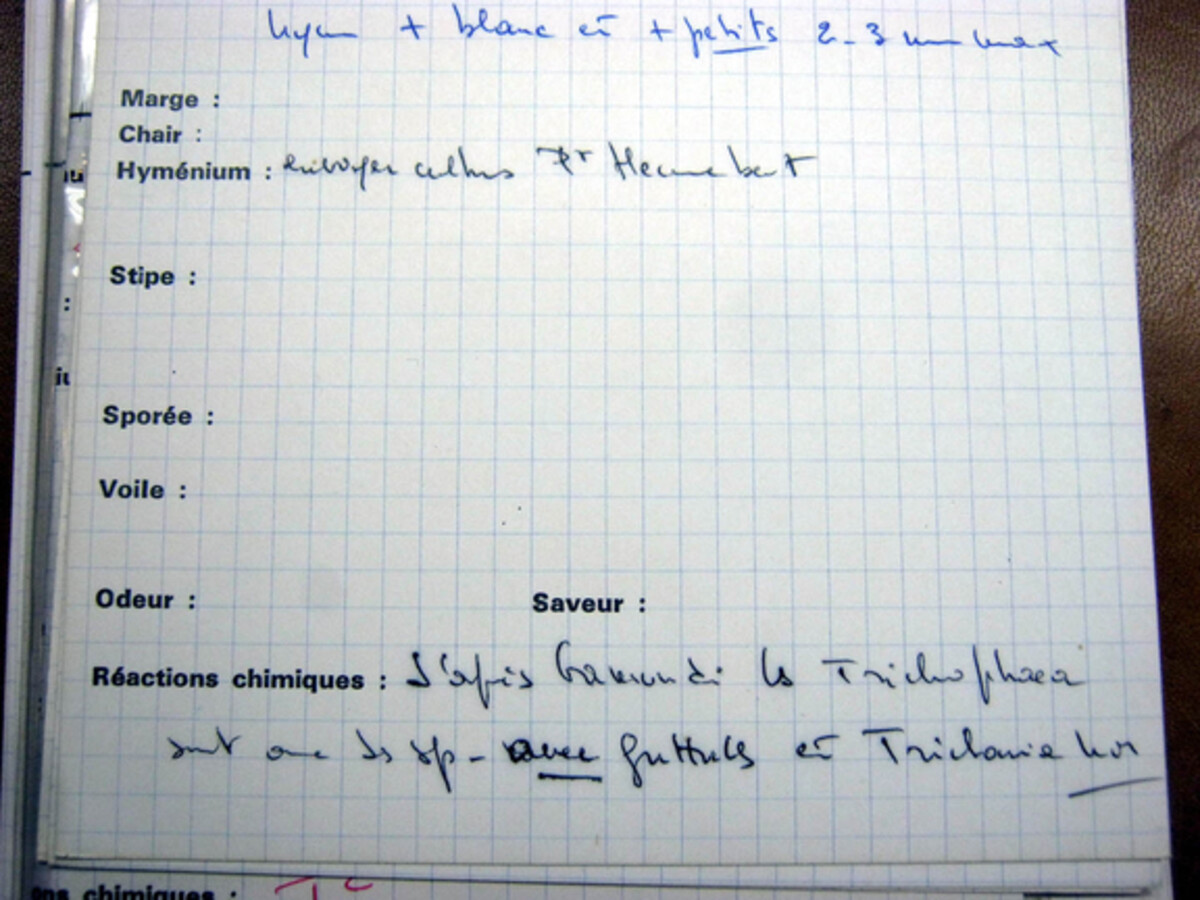 hym + blanc et + petits 2-3 mm max
Marge :
Chair :
Hyménium : envoyer cultures Pr Hennebert
Stipe :
Sporée :
Voile :
Odeur : Saveur :
Réactions chimiques : D'après Gamundi les Trichophaea
sont avec des sp- avec guttules et Tricharia non
ons chimiques :